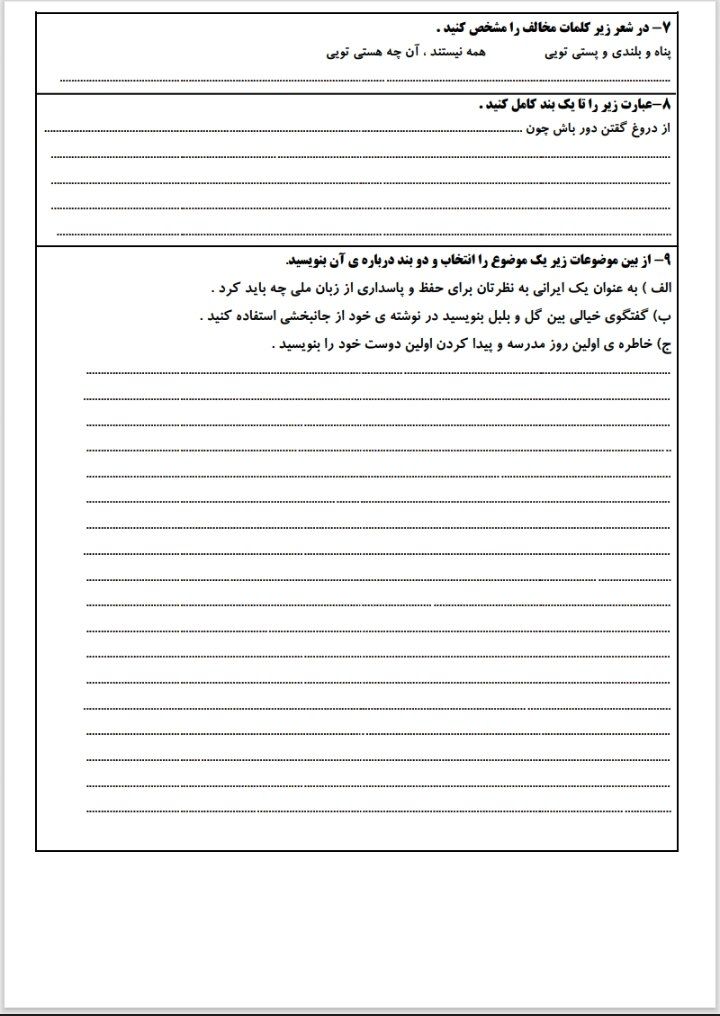 ۷- در شعر زیر کلمات مخالف را مشخص کنید .
پناه و بلندی و پستی تویی همه نیستند ، آن چه هستی تویی
۸-عبارت زیر را تا یک بند کامل کنید .
از دروغ گفتن دور باش چون
۹- از بین موضوعات زیر یک موضوع را انتخاب و دو بند درباره ی آن بنویسید.
الف ) به عنوان یک ایرانی به نظرتان برای حفظ و پاسداری از زبان ملی چه باید کرد .
ب) گفتگوی خیالی بین گل و بلبل بنویسید در نوشته ی خود از جانبخشی استفاده کنید .
ج) خاطره ی اولین روز مدرسه و پیدا کردن اولین دوست خود را بنویسید .